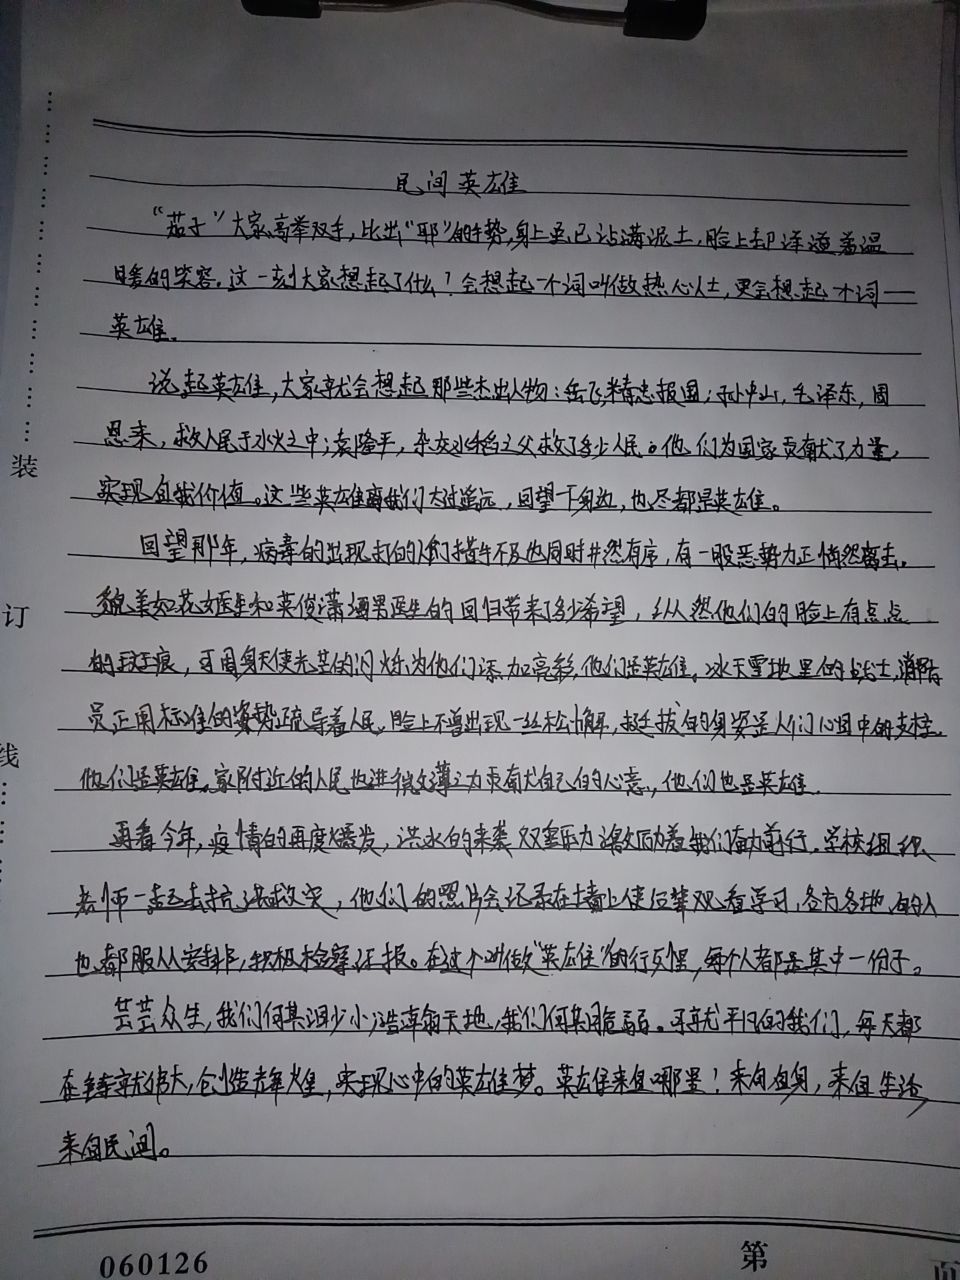 民间英雄
“茄子”大家高举双手，比出“耶”的手势，身上虽已沾满泥土，脸上却洋溢着温
暖的笑容。这一刻大家想起了什么！会想起一个词叫做热心人士，更会想起一个词——
英雄。
说起英雄，大家就会想起那些杰出人物：岳飞，精忠报国；孙中山，毛泽东，周
恩来，救人民于水火之中；袁隆平，杂交水稻之父救了多少人民。他们为国家贡献了力量，
实现自我价值。这些英雄离我们太过遥远，回望一下身边，也尽都是英雄。
回望那年，病毒的出现打的人们措手不及也同时井然有序，有一股恶势力正悄然离去。
貌美如花女医生和英俊潇洒男医生的回归带来了多少希望，纵然他们的脸上有点点
的斑痕，可周身天使光芒的闪烁为他们添加亮彩，他们是英雄。冰天雪地里的战士，消防
员正用标准的姿势疏导着人民，脸上不曾出现一丝松懈，挺拔的身姿是人们心目中的支柱。
他们是英雄。家附近的人民也进微薄之力贡献自己的心意，他们也是英雄。
再看今年，疫情的再度爆发，洪水的来袭双重压力激励着我们奋力前行。学校组织
老师一起去抗洪救灾，他们的照片会记录在墙上使后辈观看学习，各方各地的人
也都服从安排，积极检察汇报。在这个叫做“英雄”的行列里，每个人都是其中一份子。
芸芸众生，我们何其渺小，浩瀚天地，我们何其脆弱。可就平凡的我们，每天都
在铸就伟大，创造辉煌，实现心中的英雄梦。英雄来自哪里！来自自身，来自生活，
来自民间。
装
订
线
060126
第
页